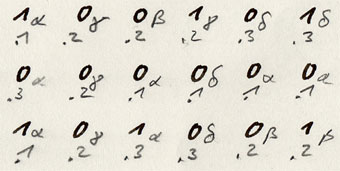 1α 0γ 0β 1γ 0δ 1δ
.1 .2 .2 .2 .3 .3
0α 0γ 0α 0δ 0α 0α
.3 .2 .1 .1 .1 .1
1α 0γ 1α 0δ 0β 1β
.1 .2 .3 .3 .2 .2